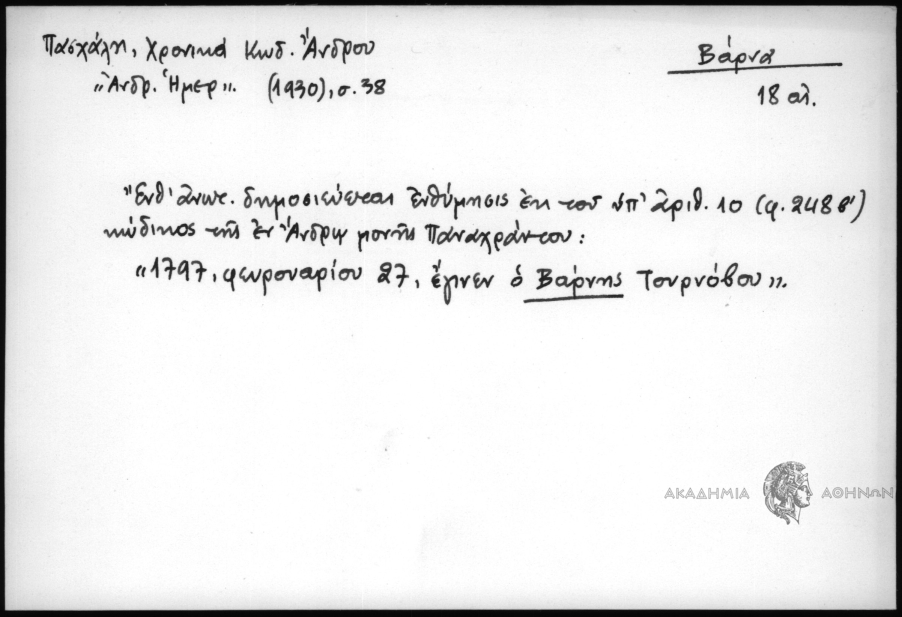 Πασχάλη, Χρονικά Κωδ. Ἄνδρου
"Ἀνδρ. Ἡμερ". (1930), σ. 38
Βάρνα
18 αἰ.
"Ἔνθ' ἀνωτ. δημοσιεύεται ἐνθύμησις ἐκ τοῦ ὑπ' ἀριθ. 10 (φ. 248β')
κώδικος τῆς ἐν Ἄνδρῳ μονῆς Παναχράντου:
"1797, φευροναρίου 27, ἔγινεν ὁ Βάρνης Τουρνόβου".
ΑΚΑΔΗΜΙΑ ΑΘΗΝΩΝ